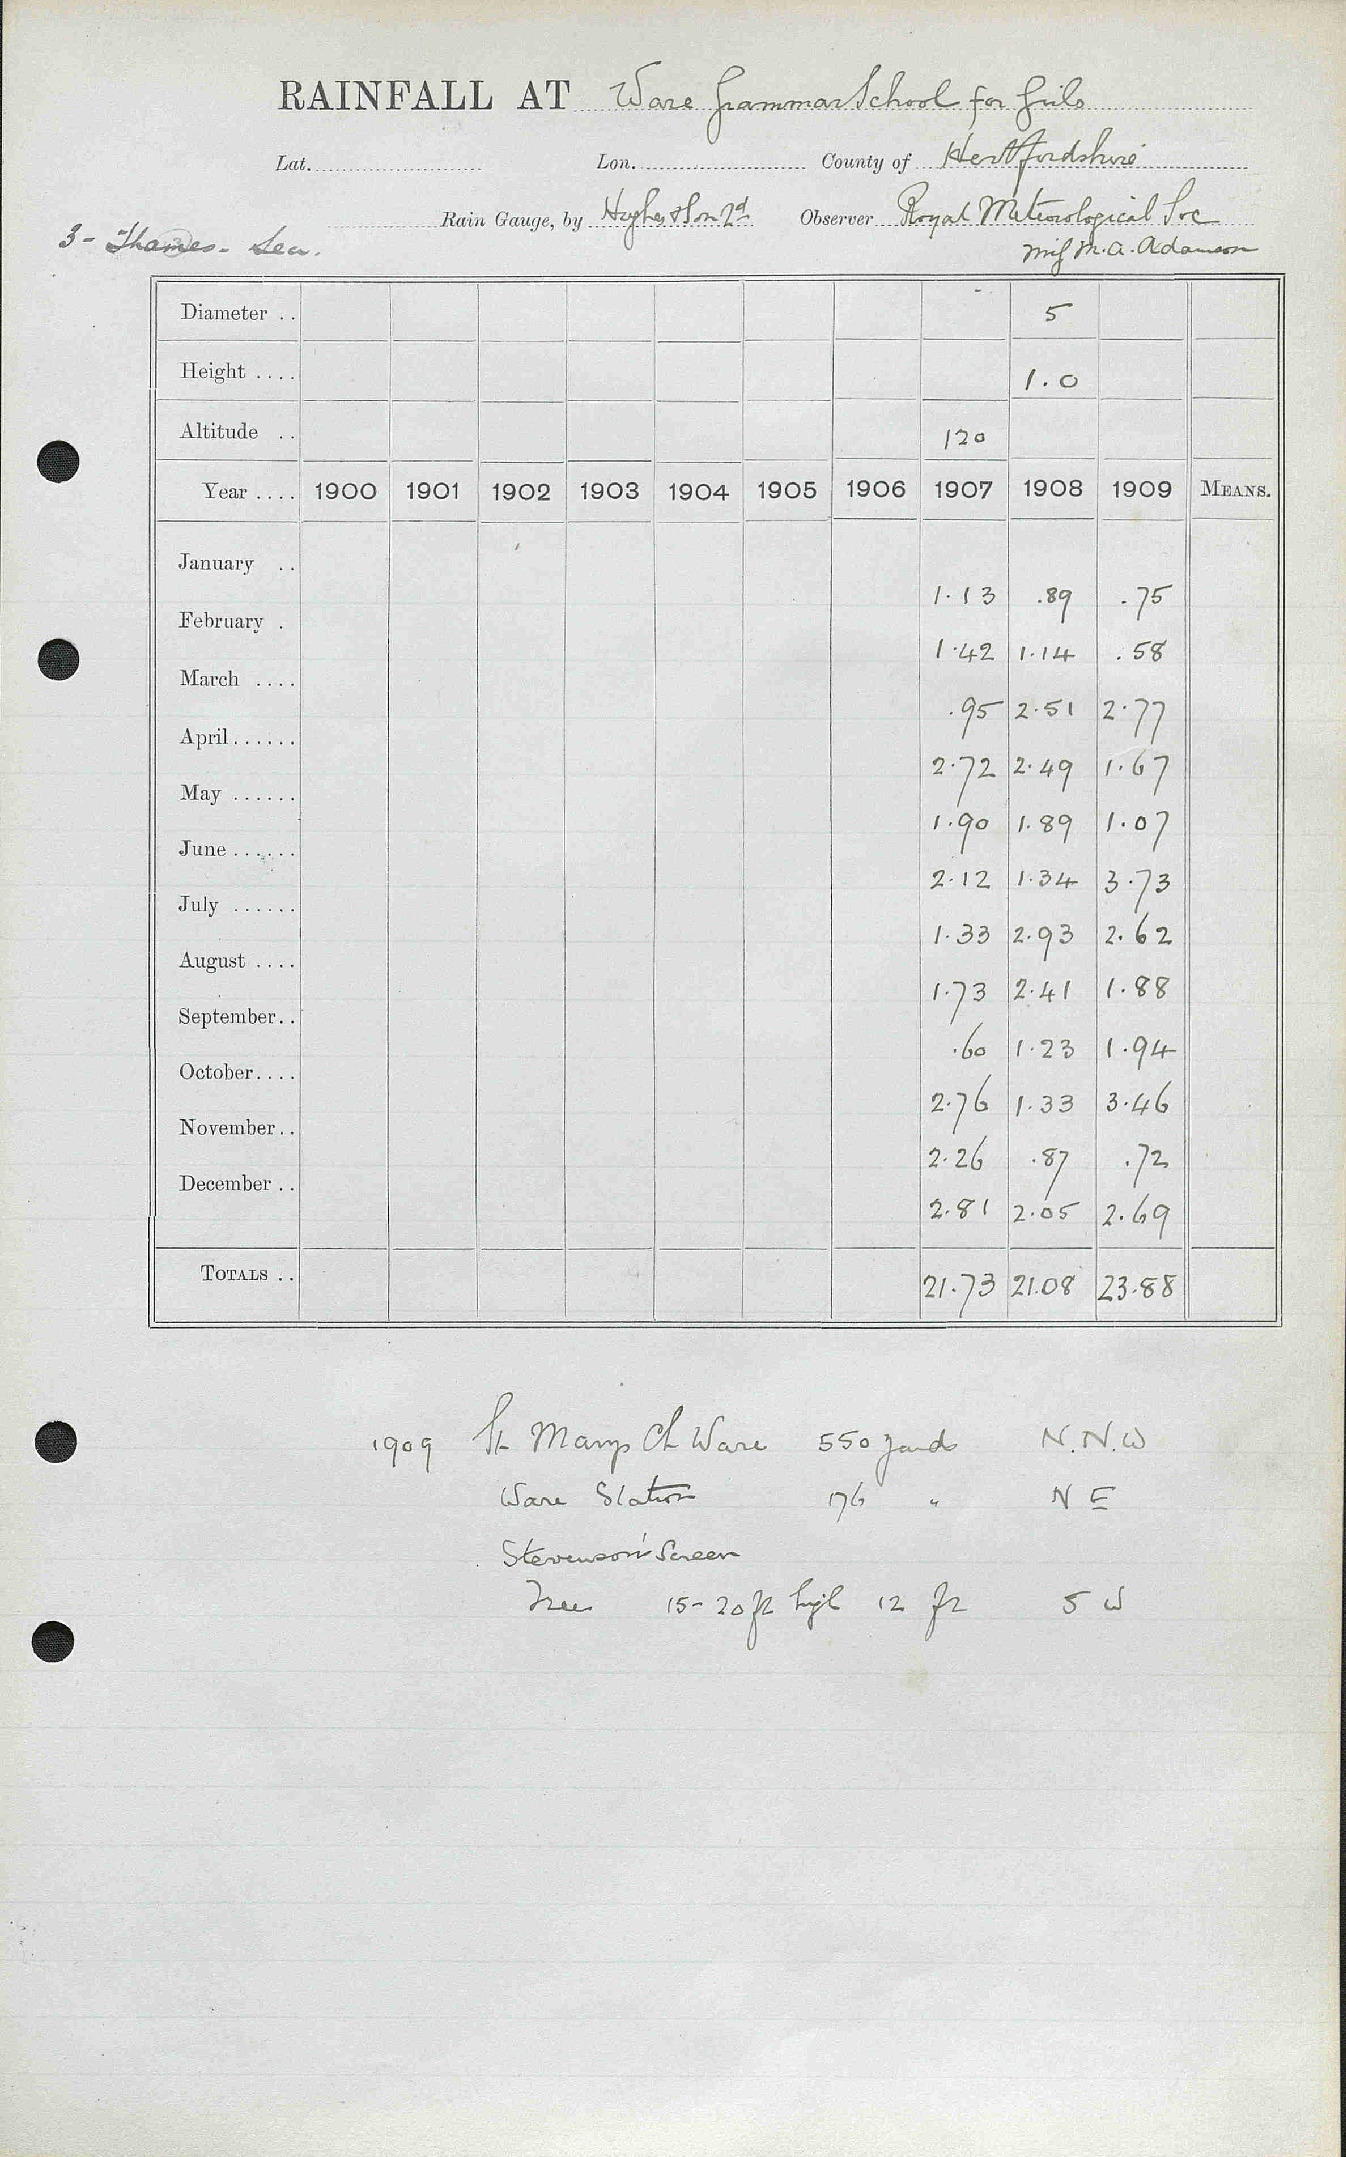 RAINFALL AT Ware Grammar School for Girls
Lat. Lon. County of Hertfordshire
Rain Gauge, by Hughes & Son Ld Observer Royal Meteorological Soc
3 - Thames - Lea. Miss M. A. Adamson
Diameter . . 5
Height . . . . 1.0
Altitude . . 120
Year . . . . 1900 1901 1902 1903 1904 1905 1906 1907 1908 1909 MEANS.
January . . 1.13 .89 .75
February . 1.42 1.14 .58
March . . . . .95 2.51 2.77
April . . . . . . 2.72 2.49 1.67
May . . . . . . 1.90 1.89 1.07
June . . . . . . 2.12 1.34 3.73
July . . . . . . 1.33 2.93 2.62
August . . . . 1.73 2.41 1.88
September . . .60 1.23 1.94
October . . . . 2.76 1.33 3.46
November . . 2.26 .87 .72
December . . 2.81 2.05 2.69
TOTALS . . 21.73 21.08 23.88
1909 St Marys Ch Ware 550 yards N.N.W
Ware Station 176 " N E
Stevenson Screen
Trees 15-20 ft high 12 ft S W